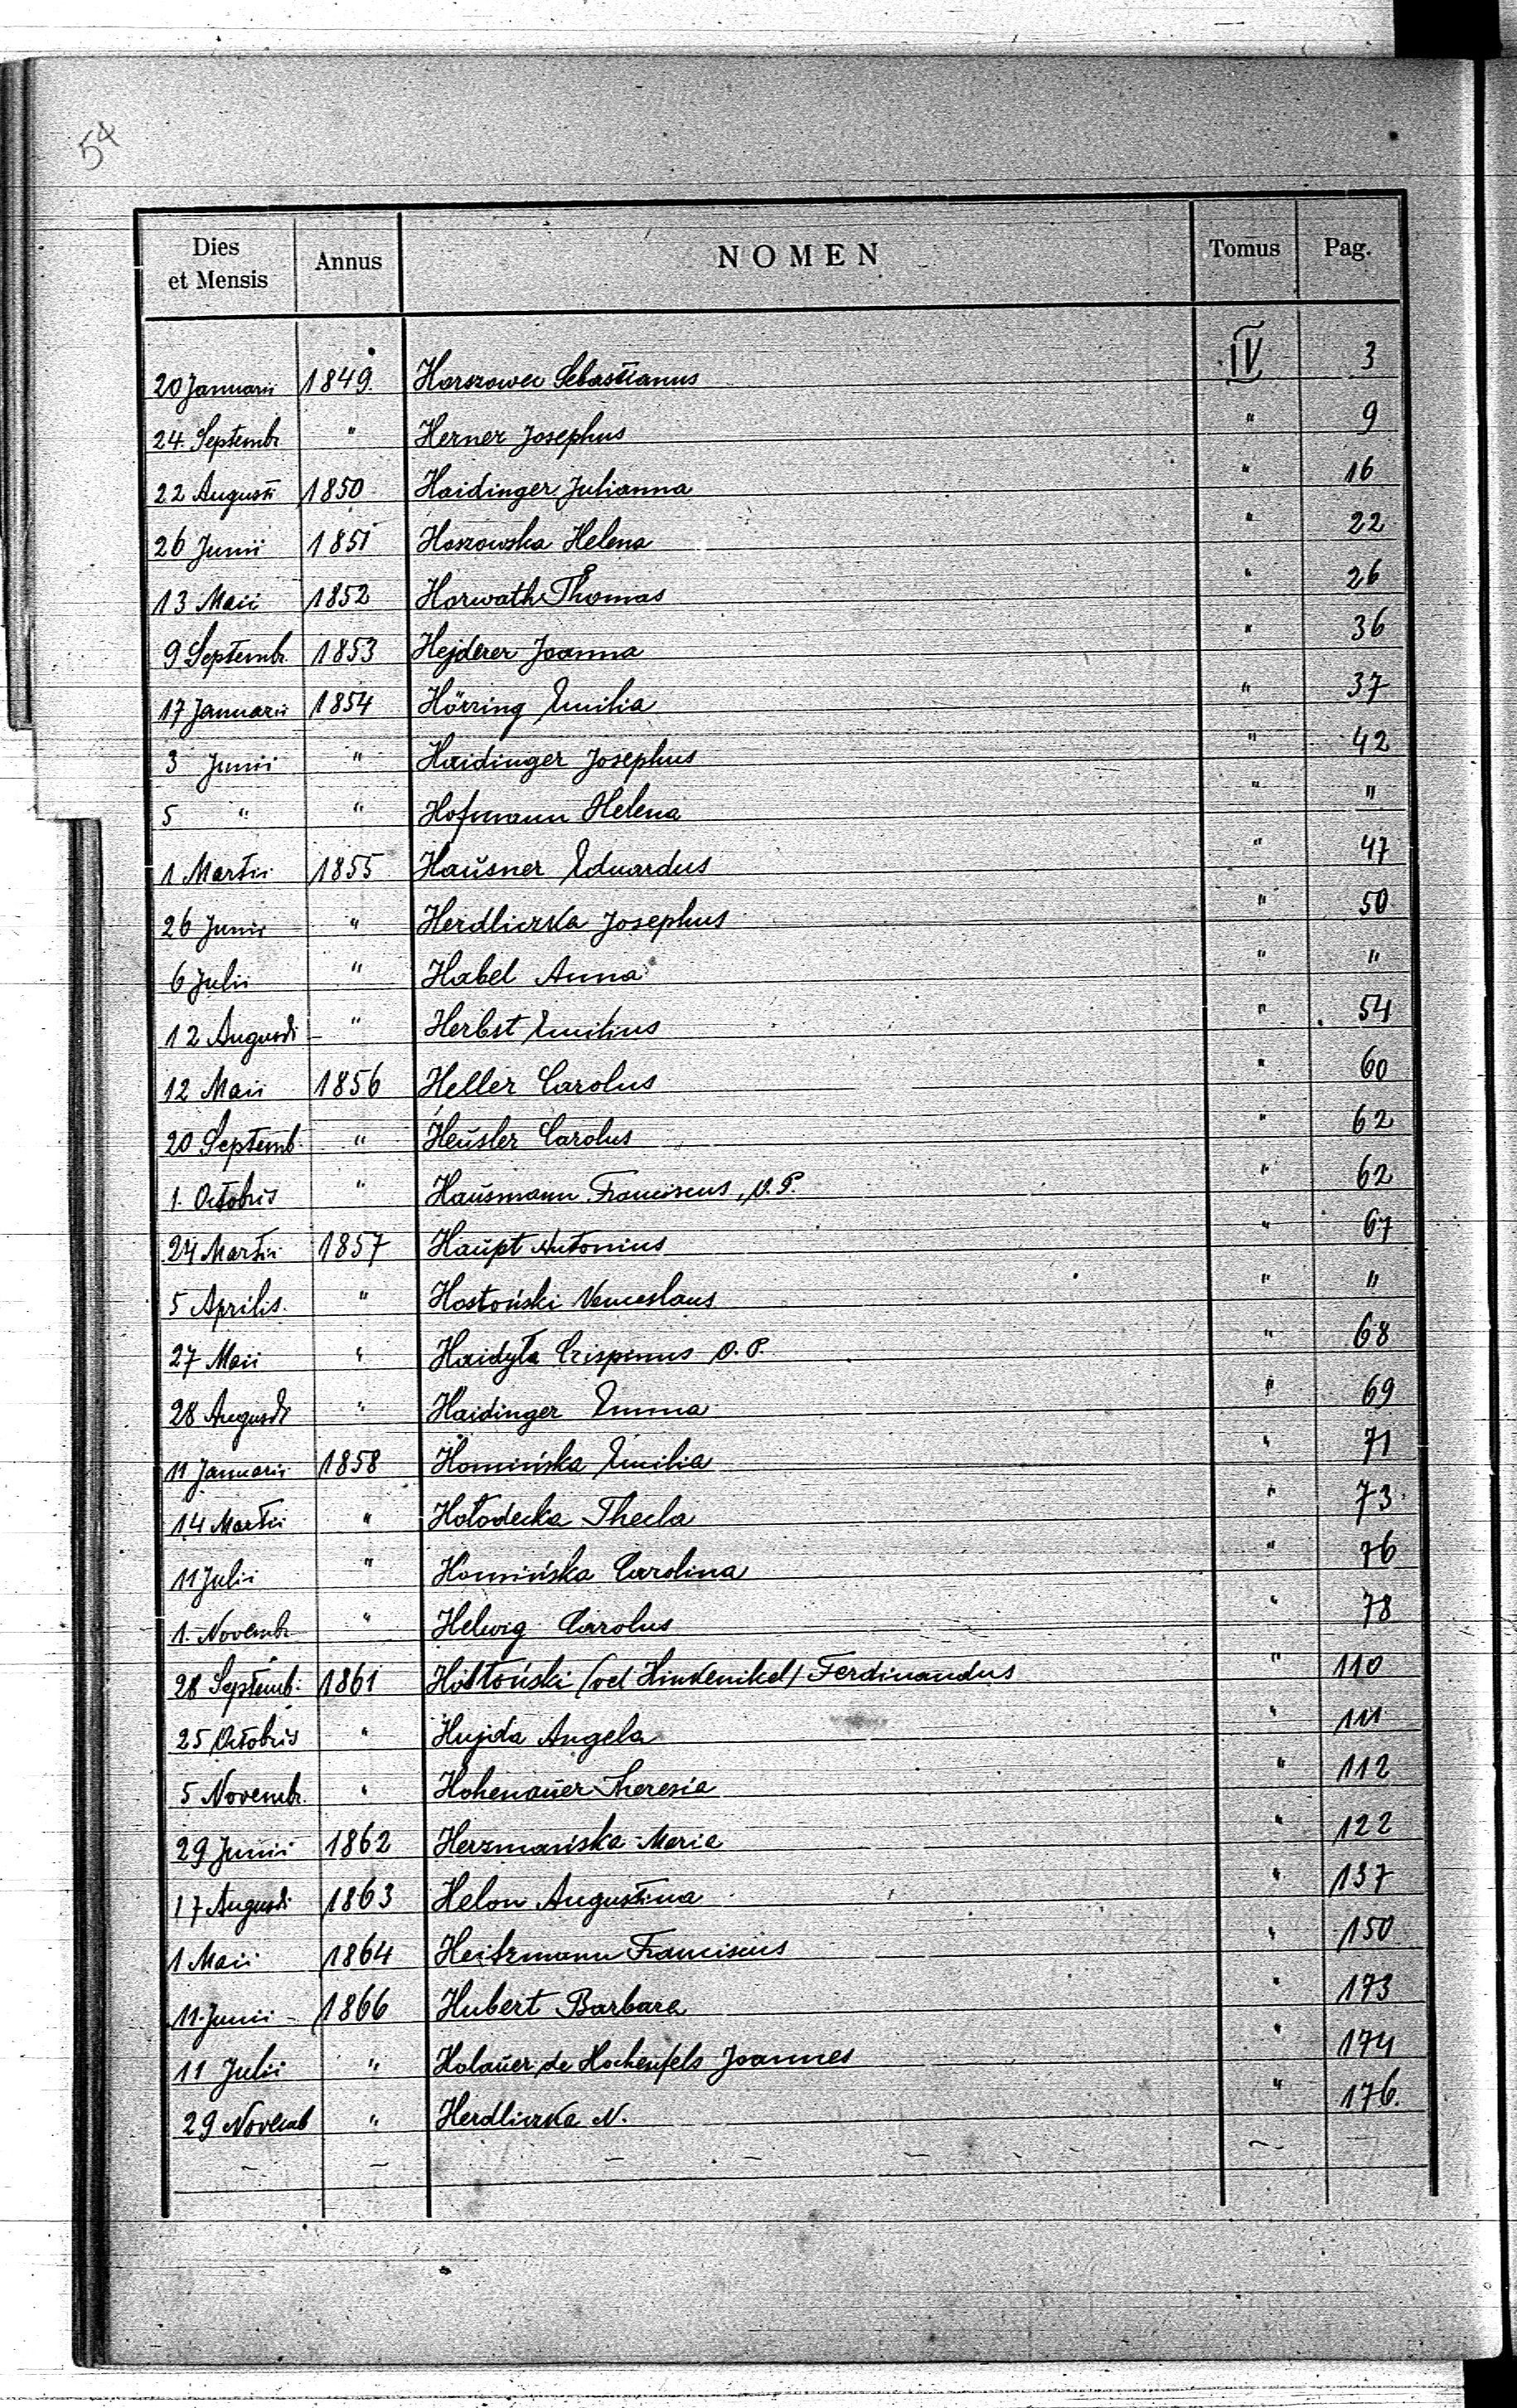 54
Dies et Mensis Annus NOMEN Tomus Pag.
20 Januarii 1849. Horszowec Sebastianus IV 3
24. Septembr. " Herner Josephus " 9
22 Augusti 1850 Haidinger Julianna " 16
26 Junii 1851 Hoszowska Helena " 22
13 Maii 1852 Horwath Thomas " 26
9 Septembr. 1853 Hejderer Joanna " 36
17 Januarii 1854 Hörring Emilia " 37
3 Junii " Haidinger Josephus " 42
5 " " Hofmann Helena " "
1 Martii 1855 Haŭsner Eduardus " 47
26 Junii " Herdliczka Josephus " 50
6 Julii " Habel Anna " "
12 Augusti " Herbst Emilius " 54
12 Maii 1856 Heller Carolus " 60
20 Septemb. " Heŭsler Carolus " 62
1. Octobris " Haŭsmann Franciscus, O.P. " 62
24 Martii 1857 Haŭpt Antonius " 67
5 Aprilis. " Hostoński Venceslaus " "
27 Maii " Haidyła Crispinus O.P. " 68
28 Augusti " Haidinger Emma " 69
11 Januarii 1858 Homińska Emilia " 71
14 Martii " Hołodecka Thecla " 73
11 Julii " Homińska Carolina " 76
1. Novembr. " Helwig Carolus " 78
28 Septemb. 1861 Hostoński (vel Hinkenikel) Ferdinandus " 110
25 Octobris " Hujda Angela " 111
5 Novembr. " Hohenaŭer Theresia " 112
29 Junii 1862 Herzmańska Maria " 122
17 Augusti 1863 Helon Augustina " 137
1 Maii 1864 Heitzmann Franciscus " 150
11. Junii 1866 Hubert Barbara " 173
11 Julii " Holaŭer de Hochenfels Joannes " 174
29 Novemb " Herdliczka N. " 176.